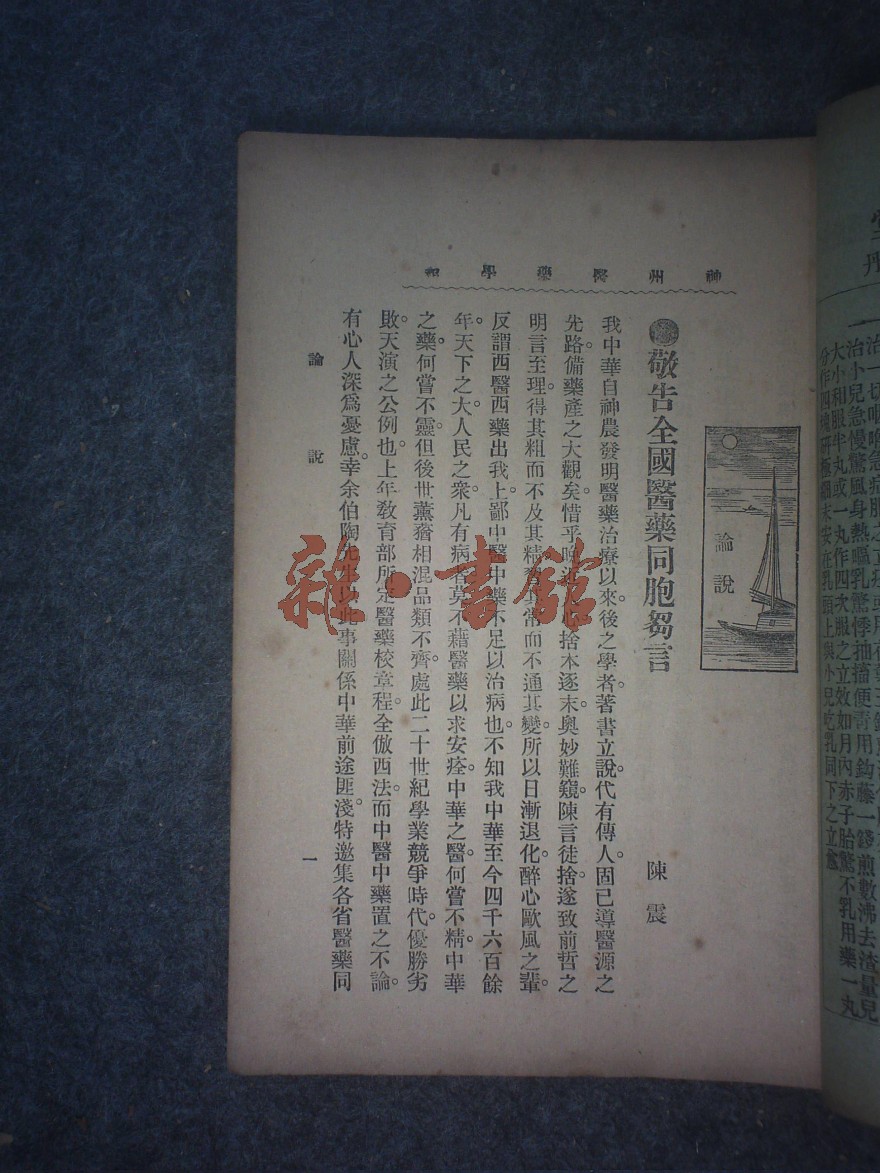 神州醫藥學報
論說
敬告全國醫藥同胞芻言
陳震
我中華自神農發明醫藥治療以來。後之學者。著書立說。代有傳人。固已導醫源之
先路。備藥產之大觀矣。惜乎 捨本逐末。奧妙難窺。陳言徒捨。遂致前哲之
明言至理。得其粗而不及其精。 其常而不通其變。所以日漸退化。醉心歐風之輩。
反謂西醫西藥出我上。鄙中醫中藥不足以治病也。不知我中華至今四千六百餘
年。天下之大。人民之衆。凡有病者。莫不藉醫藥以求安痊。中華之醫。何嘗不精。中華
之藥。何嘗不靈。但後世薰蕕相混。品類不齊。處此二十世紀學業競爭時代。優勝劣
敗。天演之公例也。上年教育部所定醫藥校章程。全倣西法。而中醫中藥置之不論。
有心人深爲憂慮。幸余伯陶先生以此事關係中華前途匪淺。特邀集各省醫藥同
論說
一
雜·書館
治小兒急慢驚風身熱嘔乳驚悸抽搐便青用鈎藤一錢煎數沸去渣量兒
大小和服半丸或一丸作四次服之立效如月內赤子胎驚不乳用藥一丸